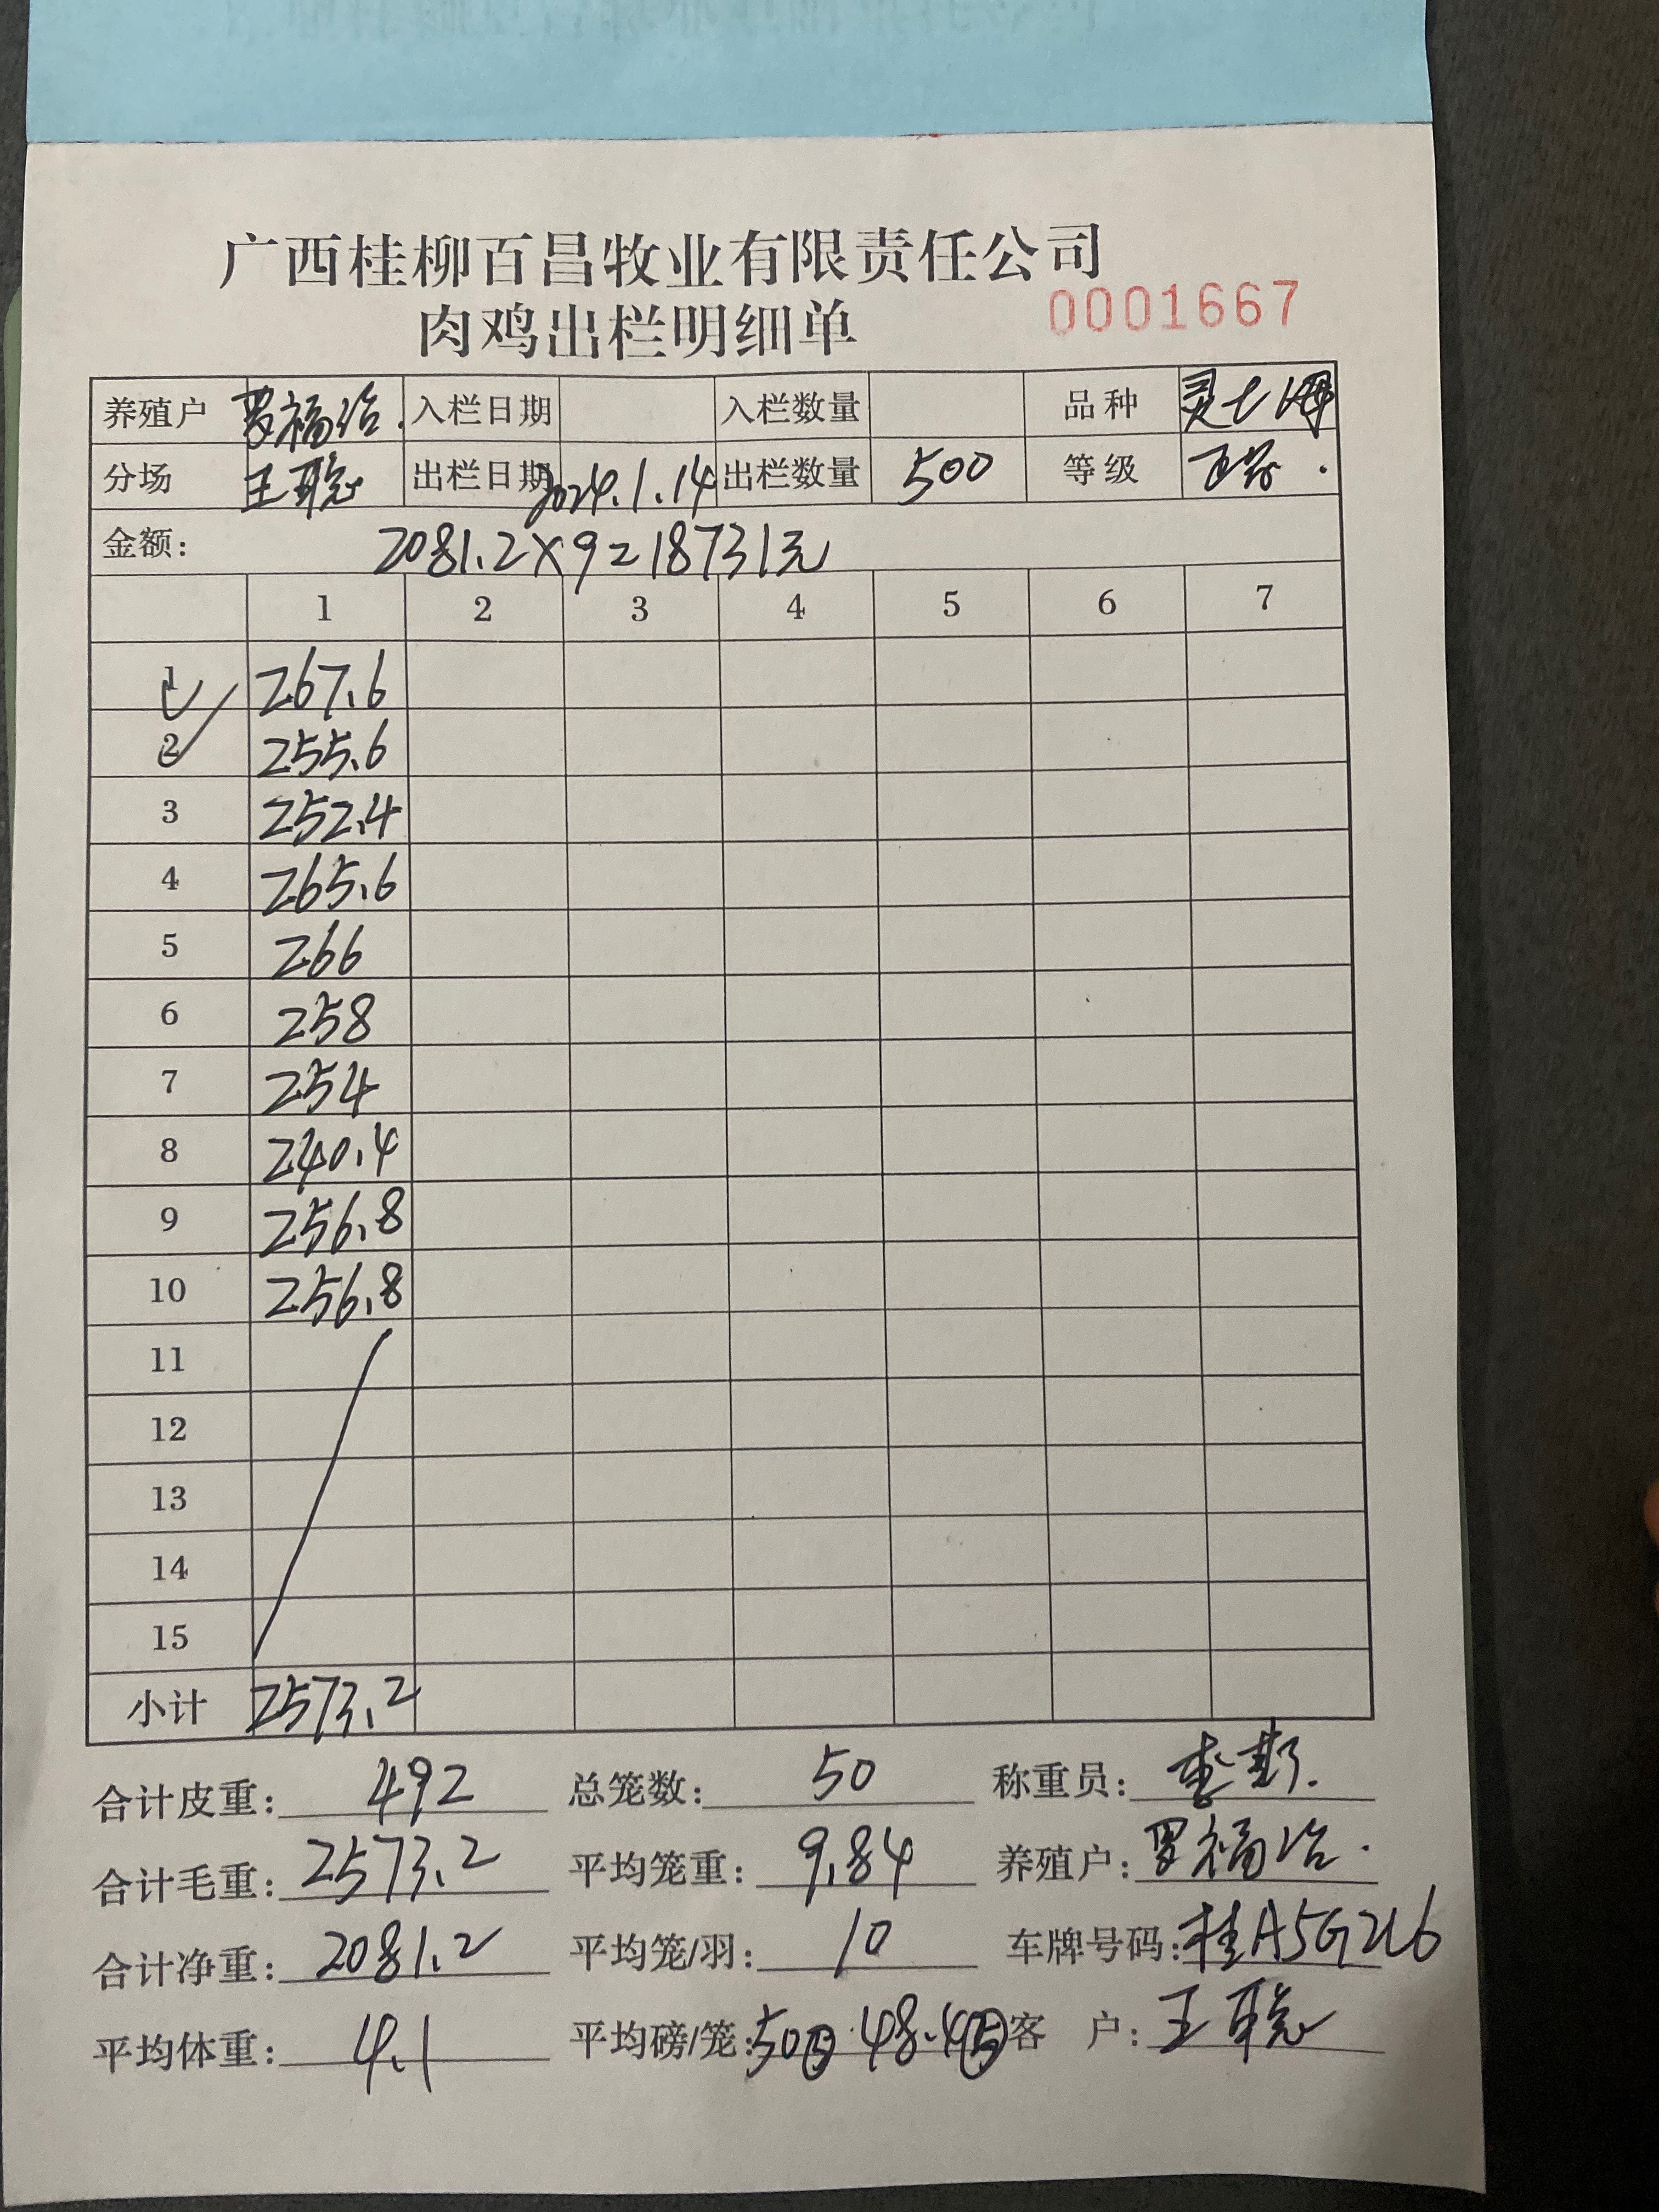 广西桂柳百昌牧业有限责任公司
肉鸡出栏明细单 0001667
养殖户 罗福治. 入栏日期 入栏数量 品种
分场 王聪 出栏日期 2024.1.14 出栏数量 500 等级
金额: 2081.2×9=18731元
1 2 3 4 5 6 7
1 267.6
2 255.6
3 252.4
4 265.6
5 266
6 258
7 254
8 240.4
9 256.8
10 256.8
11
12
13
14
15
小计 2573.2
合计皮重: 492 总笼数: 50 称重员:
合计毛重: 2573.2 平均笼重: 9.84 养殖户: 罗福治.
合计净重: 2081.2 平均笼/羽: 10 车牌号码: 桂A5G2L6
平均体重: 4.1 平均磅/笼: 50⑤ 48.4⑤ 客 户: 王聪